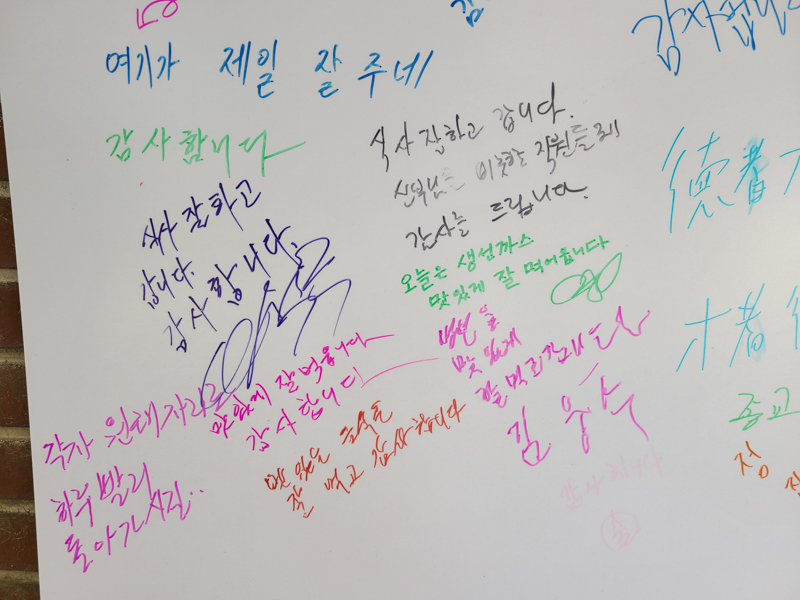 감사합니다
여기가 제일 잘 주네
감사합니다
식사 잘하고 갑니다.
신부님을 비롯한 직원들께
감사를 드립니다.
식사 잘하고
갑니다.
감사합니다.
오늘은 생선까스
맛있게 잘 먹어읍니다
德者
才者
맛있게
잘 먹고 갑니다
맛있게 잘 먹읍니다
감사합니다
각자 원래자리로
하루빨리
돌아가시길..
맛있는 음식을
잘 먹고 감사합니다
김용수
감사합니다
종교